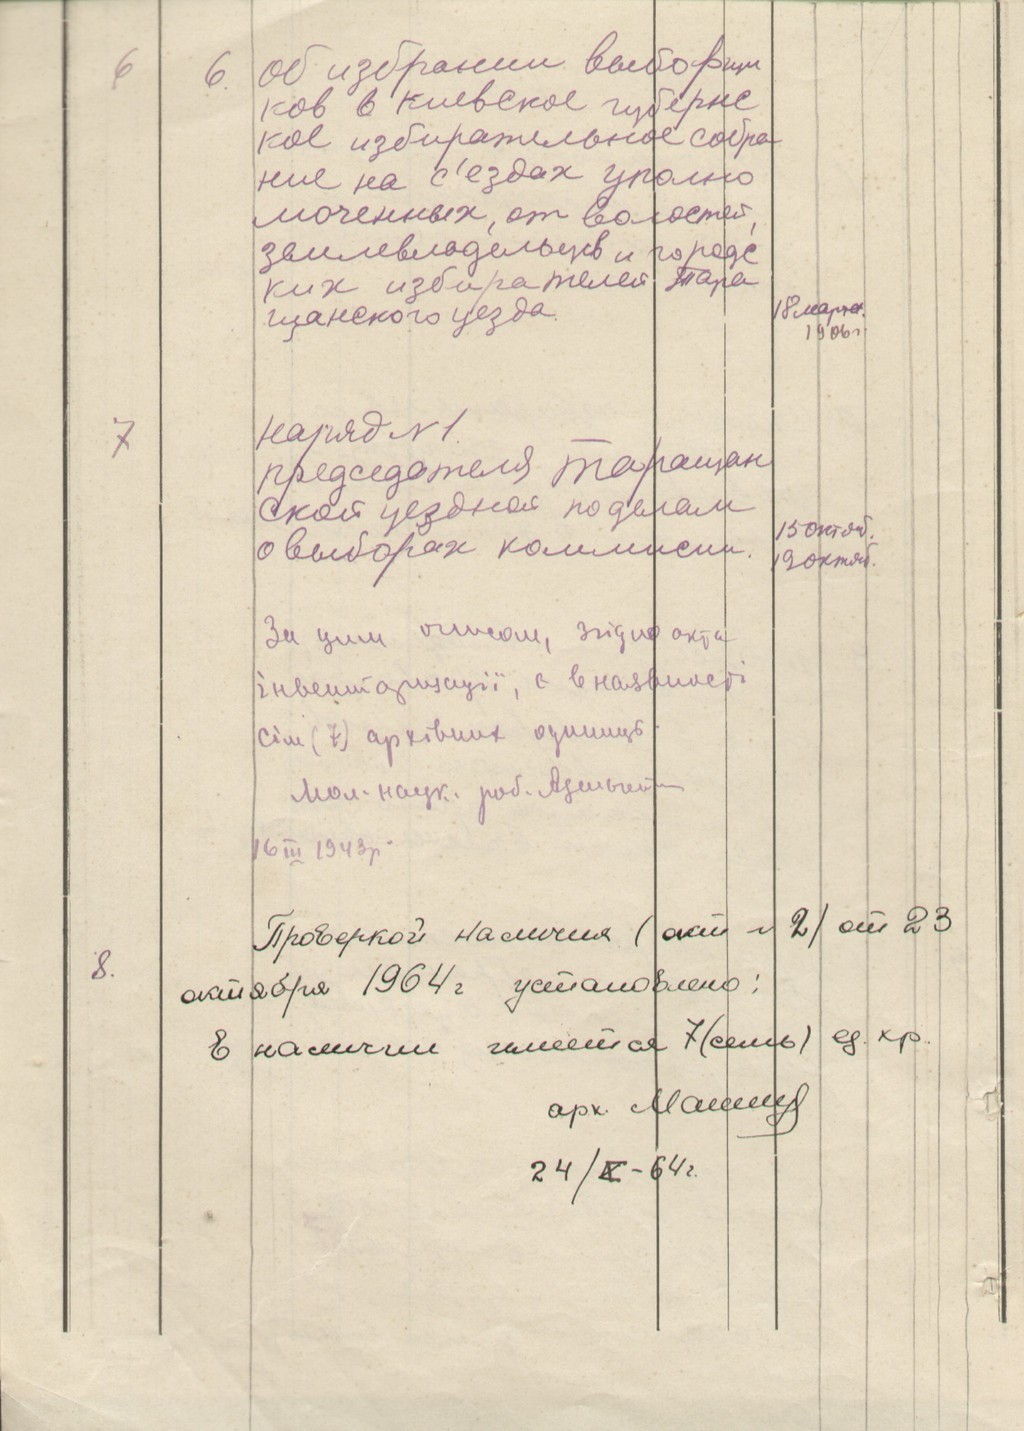 6 6. Об избрании выборщи
ков в Киевское губернс
кое избирательное собра
ние на с'ездах уполно
моченных, от волостей,
землевладельцев и городс
ких избирателей Тара
щанского уезда. 18 марта
1906 г.
7 Наряд № 1.
председателя Таращан
ской уездной по делам
о выборах коммисии. 15 октяб.
19 октяб.
За цим описом, згідно акта
інвентаризації, є в наявності
сім (7) архівних одиниць.
Мол. наук. роб.
16 III 1943 р.
Проверкой наличия (акт № 2) от 23
8. октября 1964 г установлено:
В наличии имеется 7 (семь) ед. хр.
арк.
24/X-64 г.